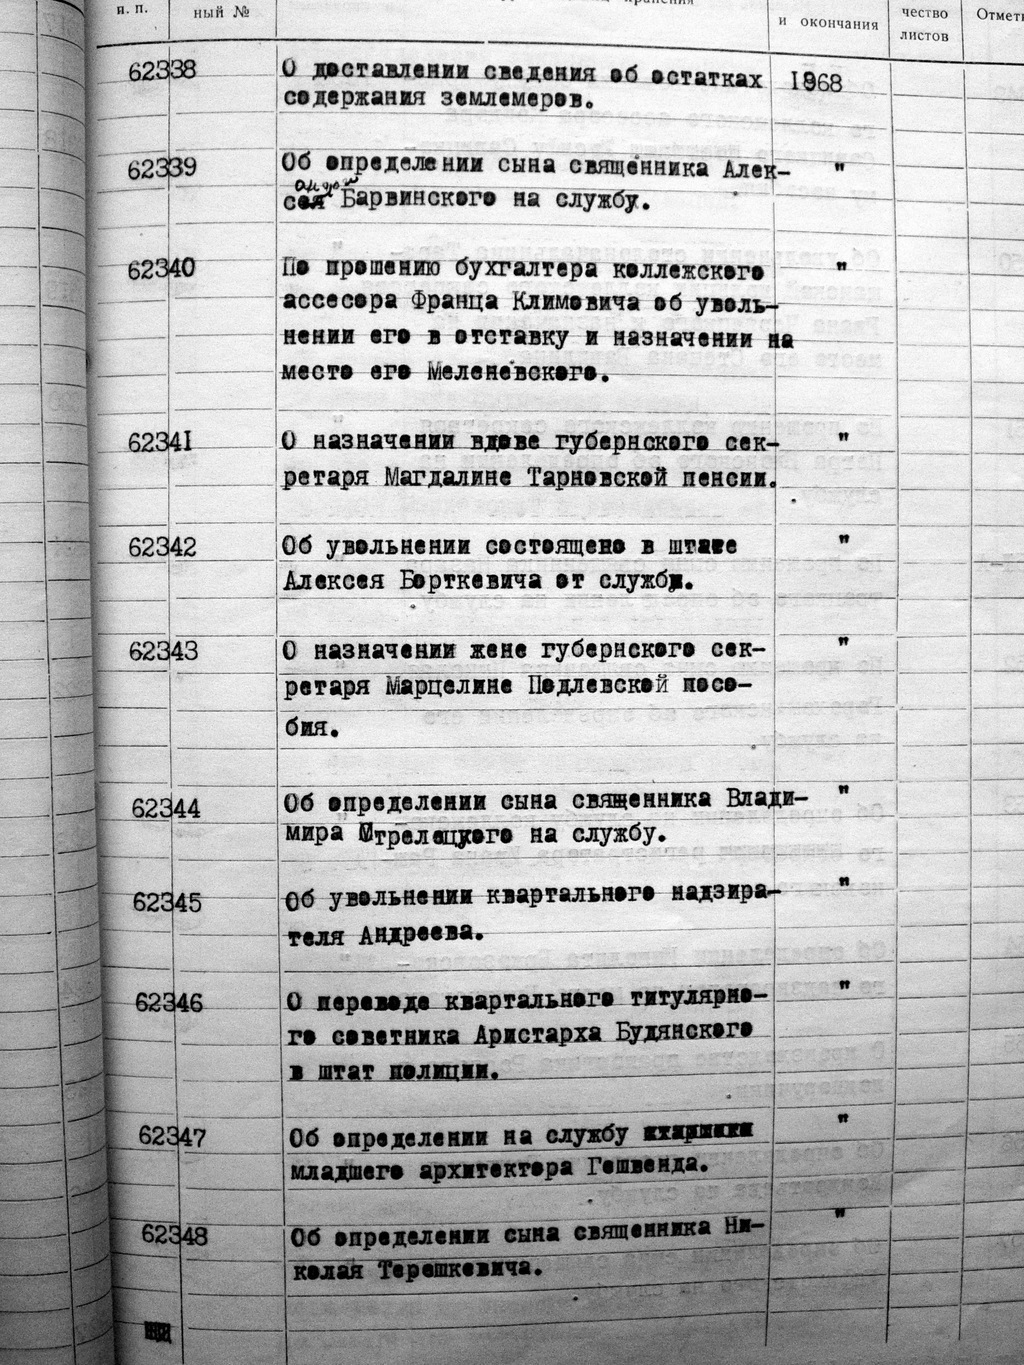 и. п.
ный №
и окончания
чество
листов
62338 О доставлении сведения об остатках 1968
содержания землемеров.
62339 Об определении сына священника Алек- "
андра Барвинского на службу.
62340 По прошению бухгалтера коллежского "
ассесора Франца Климовича об уволь-
нении его в отставку и назначении на
место его Меленевского.
62341 О назначении вдове губернского сек- "
ретаря Магдалине Тарновской пенсии.
62342 Об увольнении состоящено в штате "
Алексея Борткевича от службы.
62343 О назначении жене губернского сек- "
ретаря Марцелине Подлевской посо-
бия.
62344 Об определении сына священника Влади- "
мира Стрелецкого на службу.
62345 Об увольнении квартального надзира- "
теля Андреева.
62346 О переводе квартального титулярно- "
го советника Аристарха Будянского
в штат полиции.
62347 Об определении на службу "
младшего архитектора Гешвенда.
62348 Об определении сына священника Ни- "
колая Терешкевича.